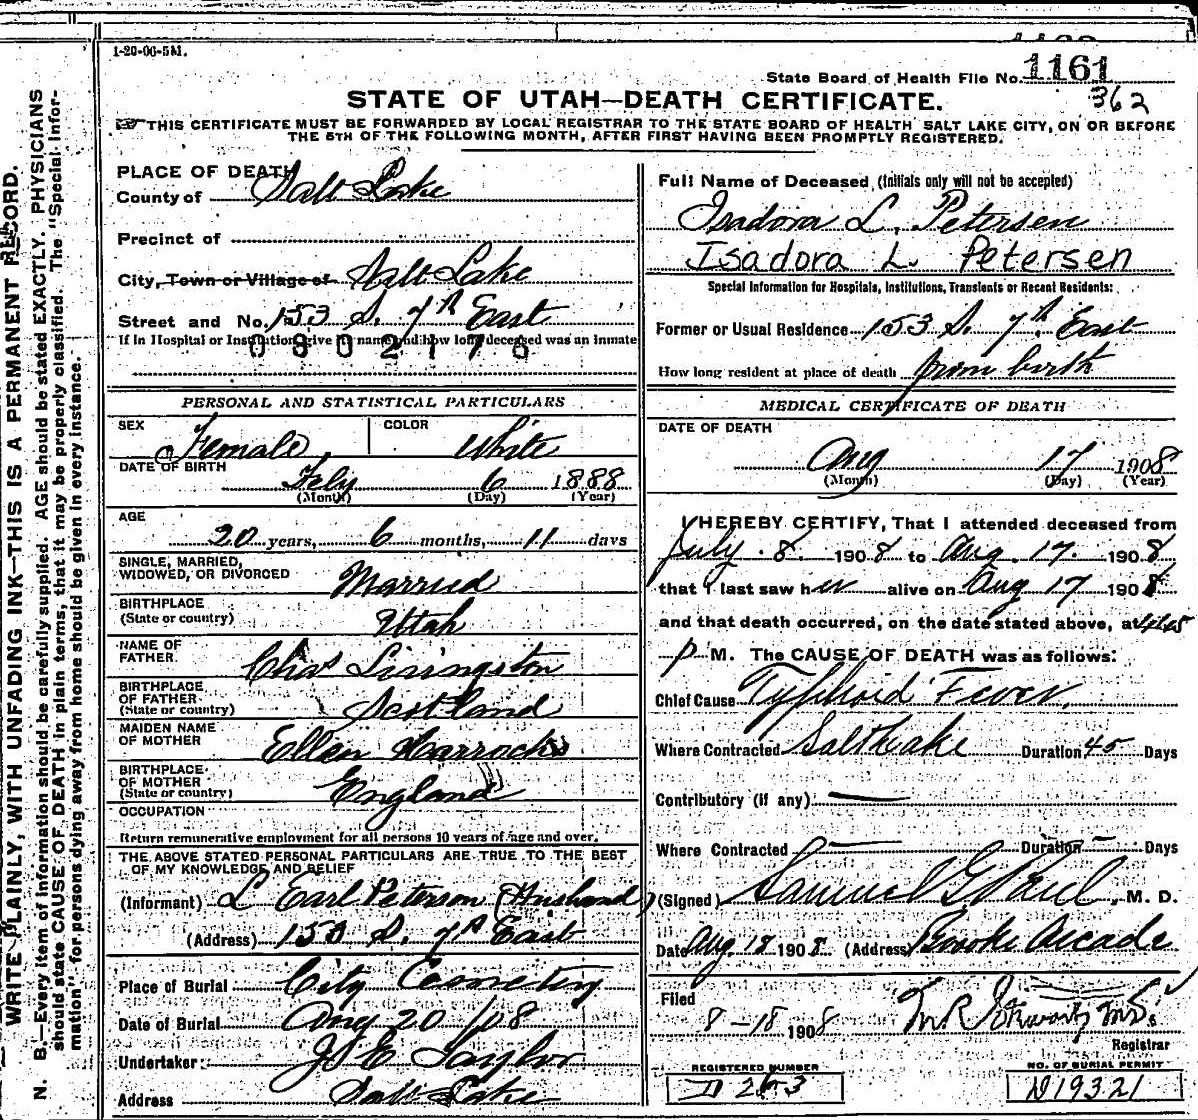 1-20-06-5M.
State Board of Health File No. 1161
362
STATE OF UTAH—DEATH CERTIFICATE.
THIS CERTIFICATE MUST BE FORWARDED BY LOCAL REGISTRAR TO THE STATE BOARD OF HEALTH SALT LAKE CITY, ON OR BEFORE
THE 5TH OF THE FOLLOWING MONTH, AFTER FIRST HAVING BEEN PROMPTLY REGISTERED.
WRITE PLAINLY, WITH UNFADING INK—THIS IS A PERMANENT RECORD.
N. B.—Every item of information should be carefully supplied. AGE should be stated EXACTLY. PHYSICIANS
should state CAUSE OF DEATH in plain terms, that it may be properly classified. The "Special Infor-
mation" for persons dying away from home should be given in every instance.
PLACE OF DEATH
County of Salt Lake
Precinct of
City, Town or Village of Salt Lake
Street and No. 153 S. 7th East
If in Hospital or Institution, give its name and how long deceased was an inmate
0802176
PERSONAL AND STATISTICAL PARTICULARS
SEX Female COLOR White
DATE OF BIRTH Feby 6 1888
(Month) (Day) (Year)
AGE 20 years, 6 months, 11 days
SINGLE, MARRIED,
WIDOWED, OR DIVORCED Married
BIRTHPLACE
(State or country) Utah
NAME OF
FATHER Chas Livingston
BIRTHPLACE
OF FATHER
(State or country) Scotland
MAIDEN NAME
OF MOTHER Ellen Harrocks
BIRTHPLACE
OF MOTHER
(State or country) England
OCCUPATION
Return remunerative employment for all persons 10 years of age and over.
THE ABOVE STATED PERSONAL PARTICULARS ARE TRUE TO THE BEST
OF MY KNOWLEDGE AND BELIEF
(Informant) L Earl Peterson (Husband)
(Address) 153 S. 7th East
Place of Burial City Cemetery
Date of Burial Aug 20/08
Undertaker: Taylor
Address Salt Lake
Full Name of Deceased (Initials only will not be accepted)
Isadora L. Petersen
Isadora L. Petersen
Special Information for Hospitals, Institutions, Transients or Recent Residents:
Former or Usual Residence 153 S. 7th East
How long resident at place of death from birth
MEDICAL CERTIFICATE OF DEATH
DATE OF DEATH
Aug 17 1908
(Month) (Day) (Year)
I HEREBY CERTIFY, That I attended deceased from
July 8. 1908 to Aug. 17. 1908
that I last saw her alive on Aug 17 1908
and that death occurred, on the date stated above, at 445
P M. The CAUSE OF DEATH was as follows:
Chief Cause Typhoid Fever.
Where Contracted Salt Lake Duration 45 Days
Contributory (if any) —
Where Contracted — Duration — Days
(Signed) Samuel G Paul, M. D.
Date Aug. 18 1908 (Address) Brooks Arcade
Filed
8-18 1908
Registrar
REGISTERED NUMBER
D 263
NO. OF BURIAL PERMIT
D19321